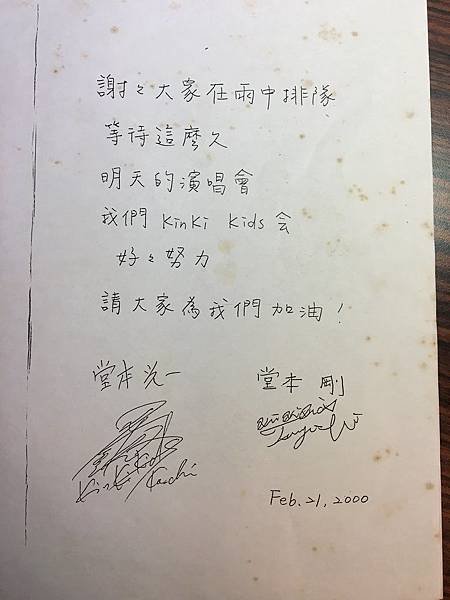 謝々大家在雨中排隊
等待這麼久
明天的演唱會
我們 KinKi Kids 会
好々努力
請大家為我們加油!
堂本光一 堂本 剛
KinKi Kids
Koichi
Feb. 21, 2000